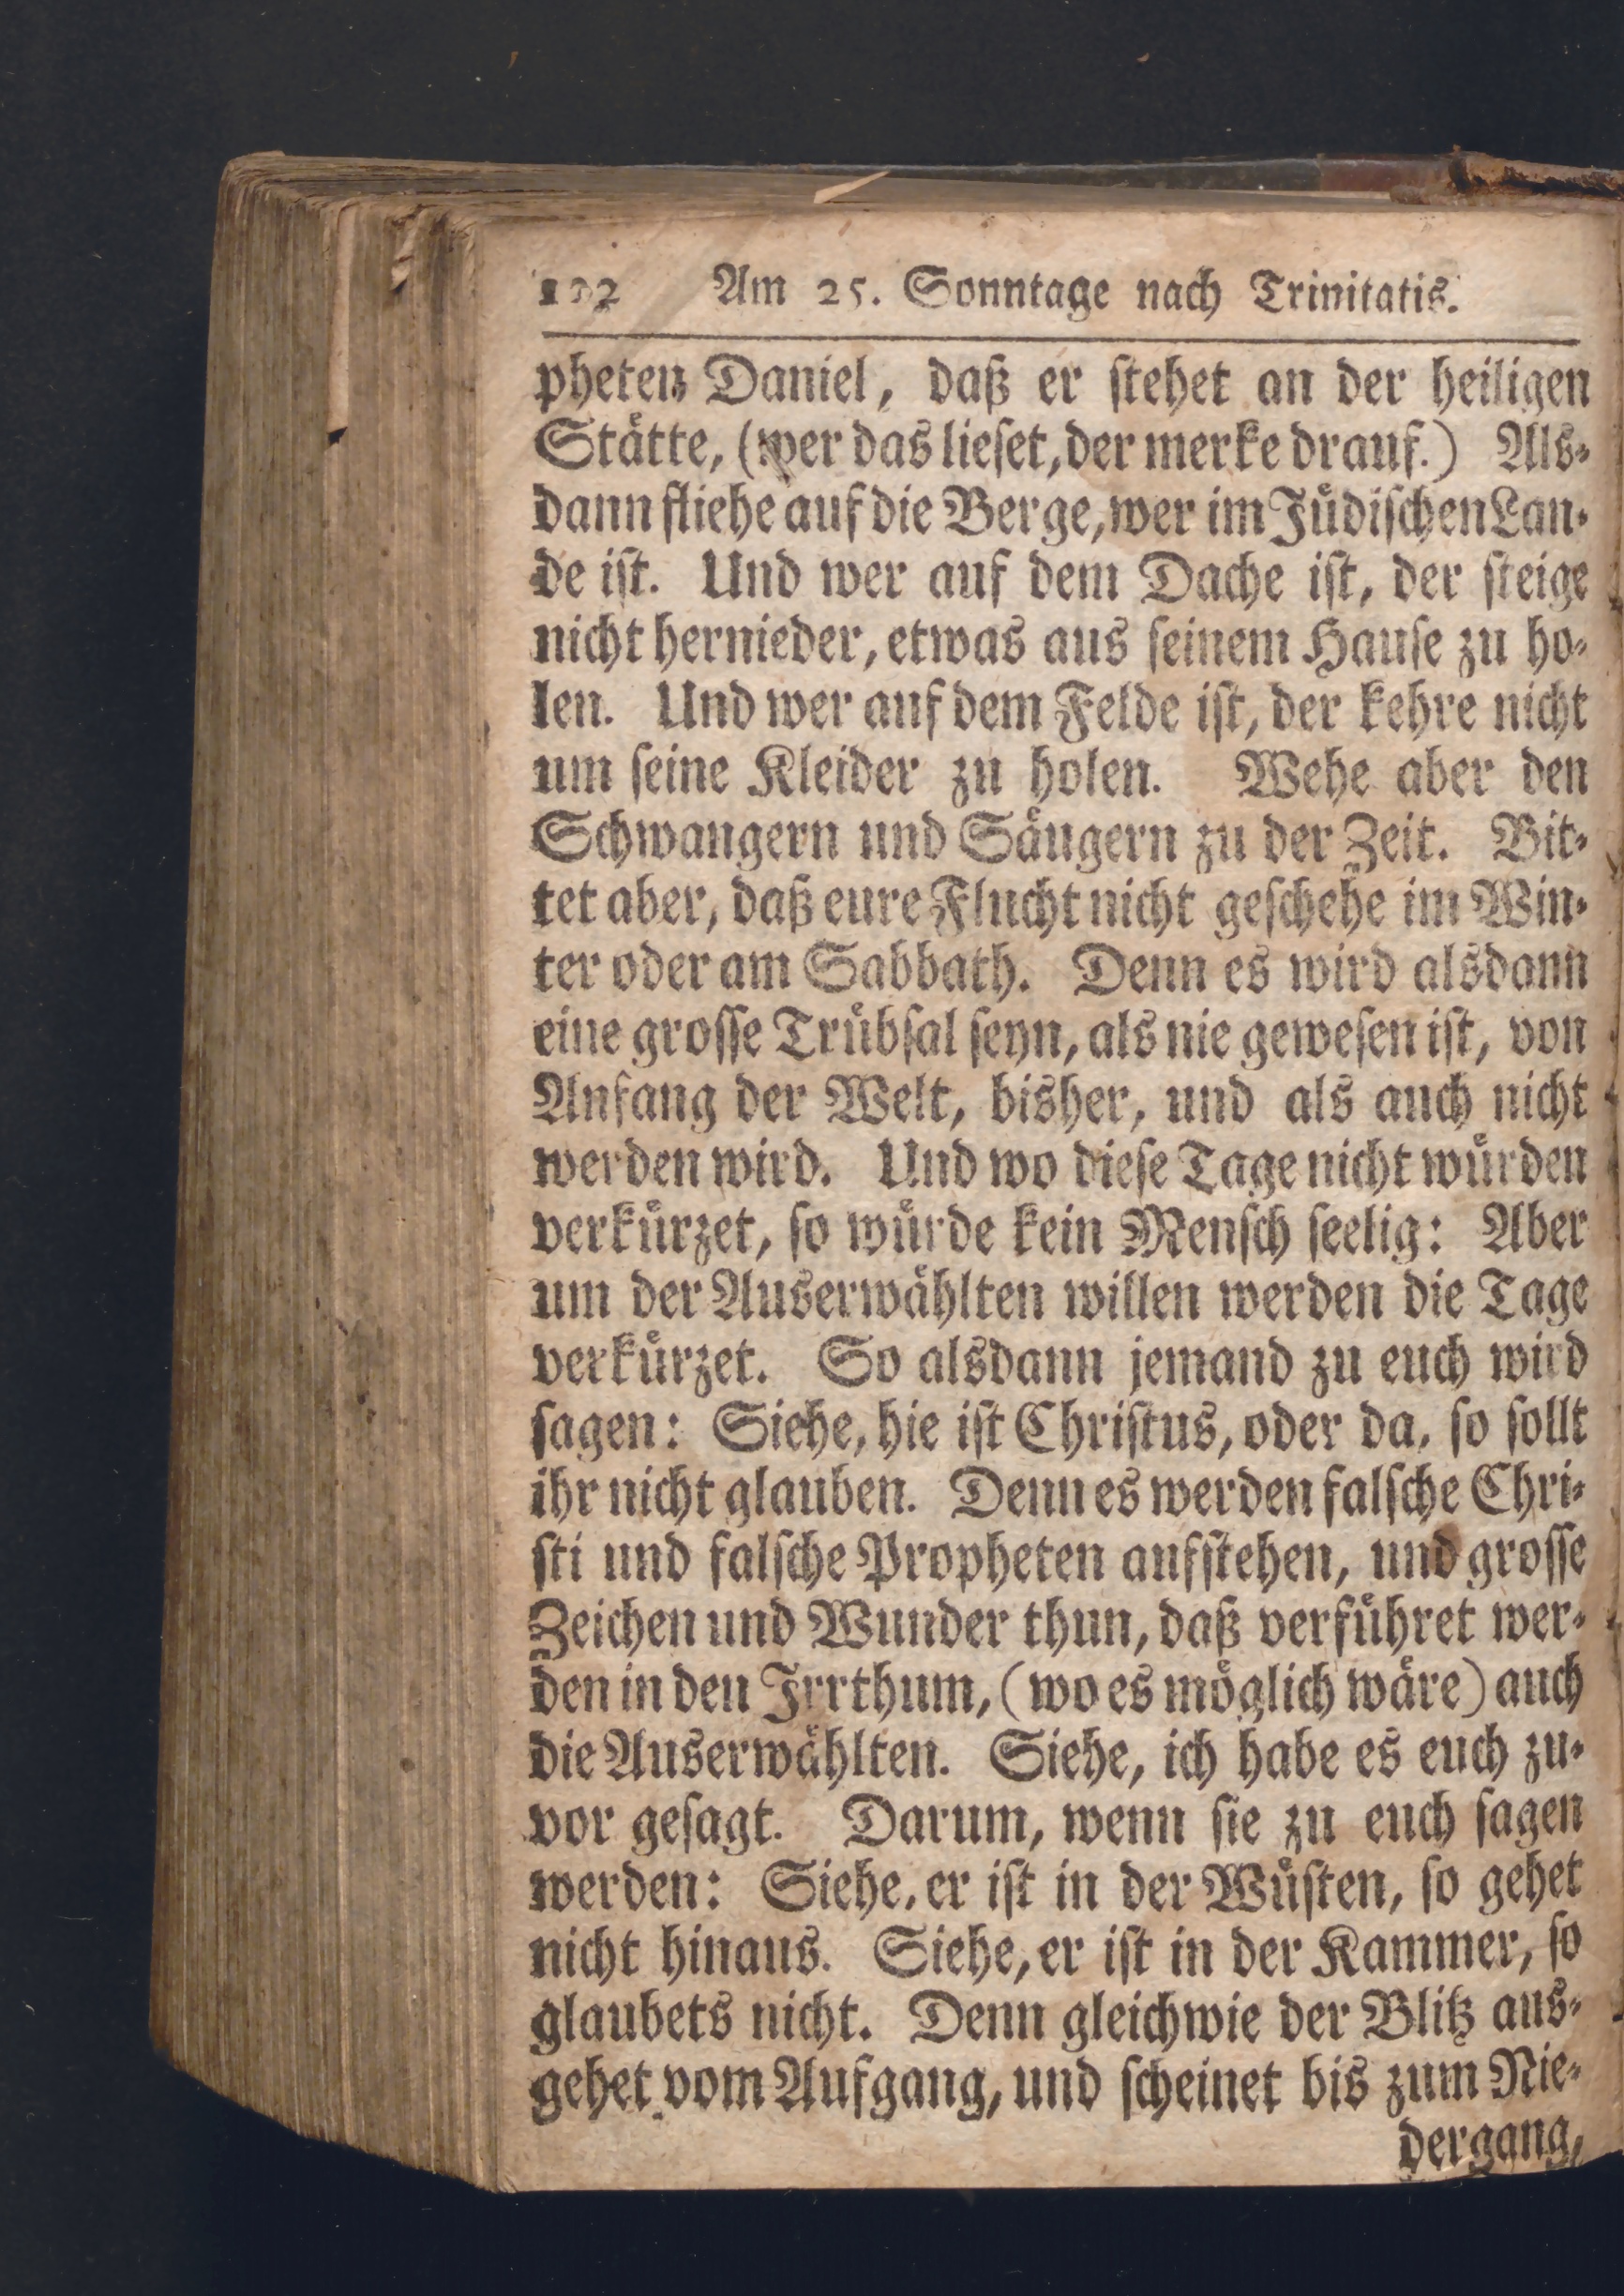 102 Am 25. Sonntage nach Trinitatis.
pheten Daniel, daß er stehet an der heiligen
Stätte, (wer das lieset, der merke drauf.) Als-
dann fliehe auf die Berge, wer im Jüdischen Lan-
de ist. Und wer auf dem Dache ist, der steige
nicht hernieder, etwas aus seinem Hause zu ho-
len. Und wer auf dem Felde ist, der kehre nicht
um seine Kleider zu holen. Wehe aber den
Schwangern und Säugern zu der Zeit. Bit-
tet aber, daß eure Flucht nicht geschehe im Win-
ter oder am Sabbath. Denn es wird alsdann
eine grosse Trübsal seyn, als nie gewesen ist, von
Anfang der Welt, bisher, und als auch nicht
werden wird. Und wo diese Tage nicht würden
verkürzet, so würde kein Mensch seelig: Aber
um der Auserwählten willen werden die Tage
verkürzet. So alsdann jemand zu euch wird
sagen: Siehe, hie ist Christus, oder da, so sollt
ihr nicht glauben. Denn es werden falsche Chri-
sti und falsche Propheten aufstehen, und grosse
Zeichen und Wunder thun, daß verführet wer-
den in den Irrthum, (wo es möglich wäre) auch
die Auserwählten. Siehe, ich habe es euch zu-
vor gesagt. Darum, wenn sie zu euch sagen
werden: Siehe, er ist in der Wüsten, so gehet
nicht hinaus. Siehe, er ist in der Kammer, so
glaubets nicht. Denn gleichwie der Blitz aus-
gehet vom Aufgang, und scheinet bis zum Nie-
dergang,